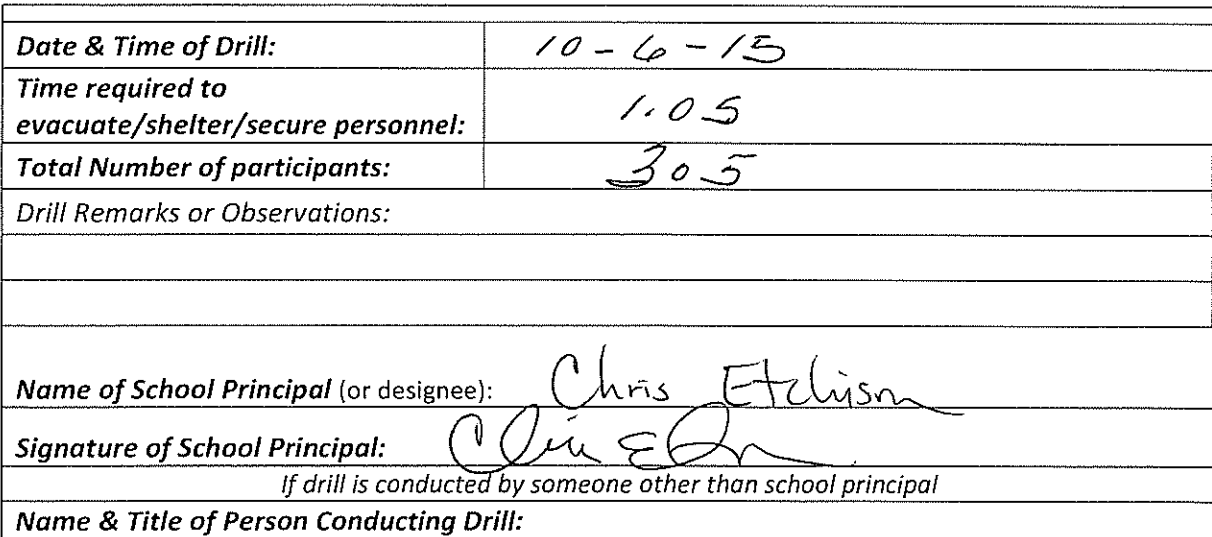 Date & Time of Drill: 10-6-15
Time required to
evacuate/shelter/secure personnel: 1.05
Total Number of participants: 305
Drill Remarks or Observations:
Name of School Principal (or designee): Chris Etchison
Signature of School Principal:
If drill is conducted by someone other than school principal
Name & Title of Person Conducting Drill: